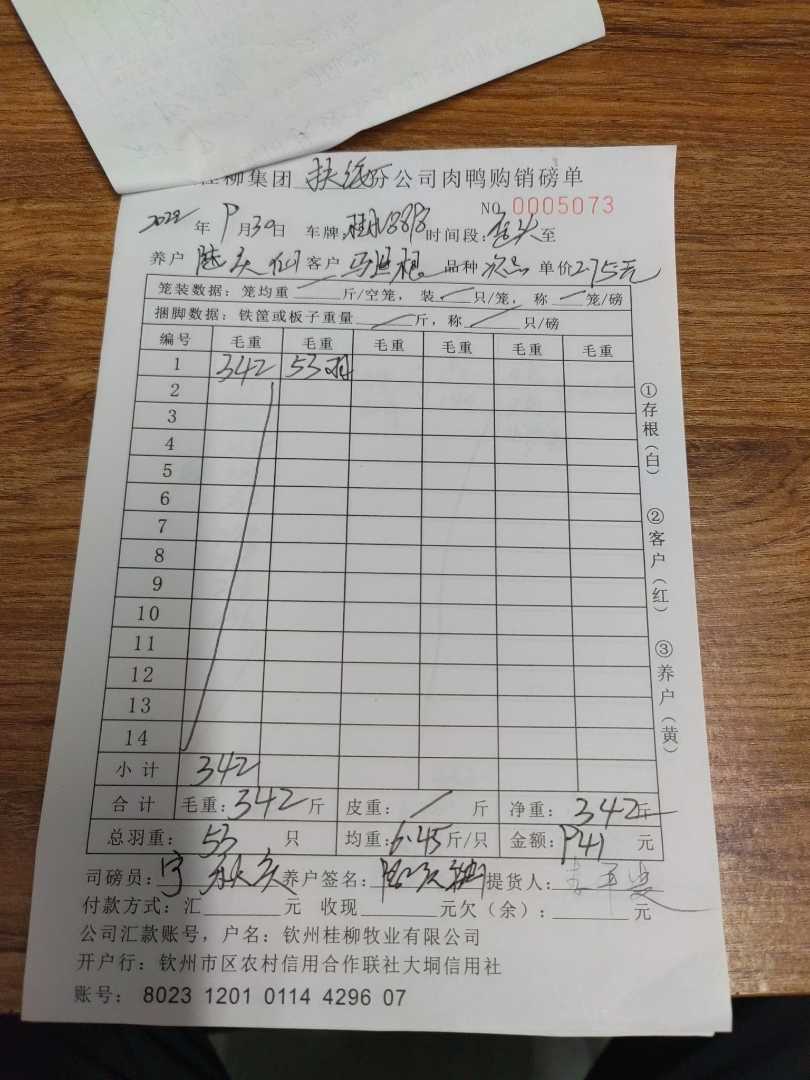 桂柳集团 扶绥分公司肉鸭购销磅单
NO 0005073
2022 年 9月30日 车牌: 时间段: 至
养户 客户 品种 次品 单价2.75元
笼装数据: 笼均重 斤/空笼, 装 只/笼, 称 笼/磅
捆脚数据: 铁筐或板子重量 斤, 称 只/磅
编号 毛重 毛重 毛重 毛重 毛重 毛重
1 342 53羽
2
3
4
5
6
7
8
9
10
11
12
13
14
小计 342
合计 毛重: 342 斤 皮重: / 斤 净重: 342 斤
总羽重: 53 只 均重: 6.45 斤/只 金额: 941 元
司磅员: 养户签名: 提货人:
付款方式: 汇 元 收现 元欠(余): 元
公司汇款账号, 户名: 钦州桂柳牧业有限公司
开户行: 钦州市区农村信用合作联社大垌信用社
账号: 8023 1201 0114 4296 07
①存根(白)
②客户(红)
③养户(黄)